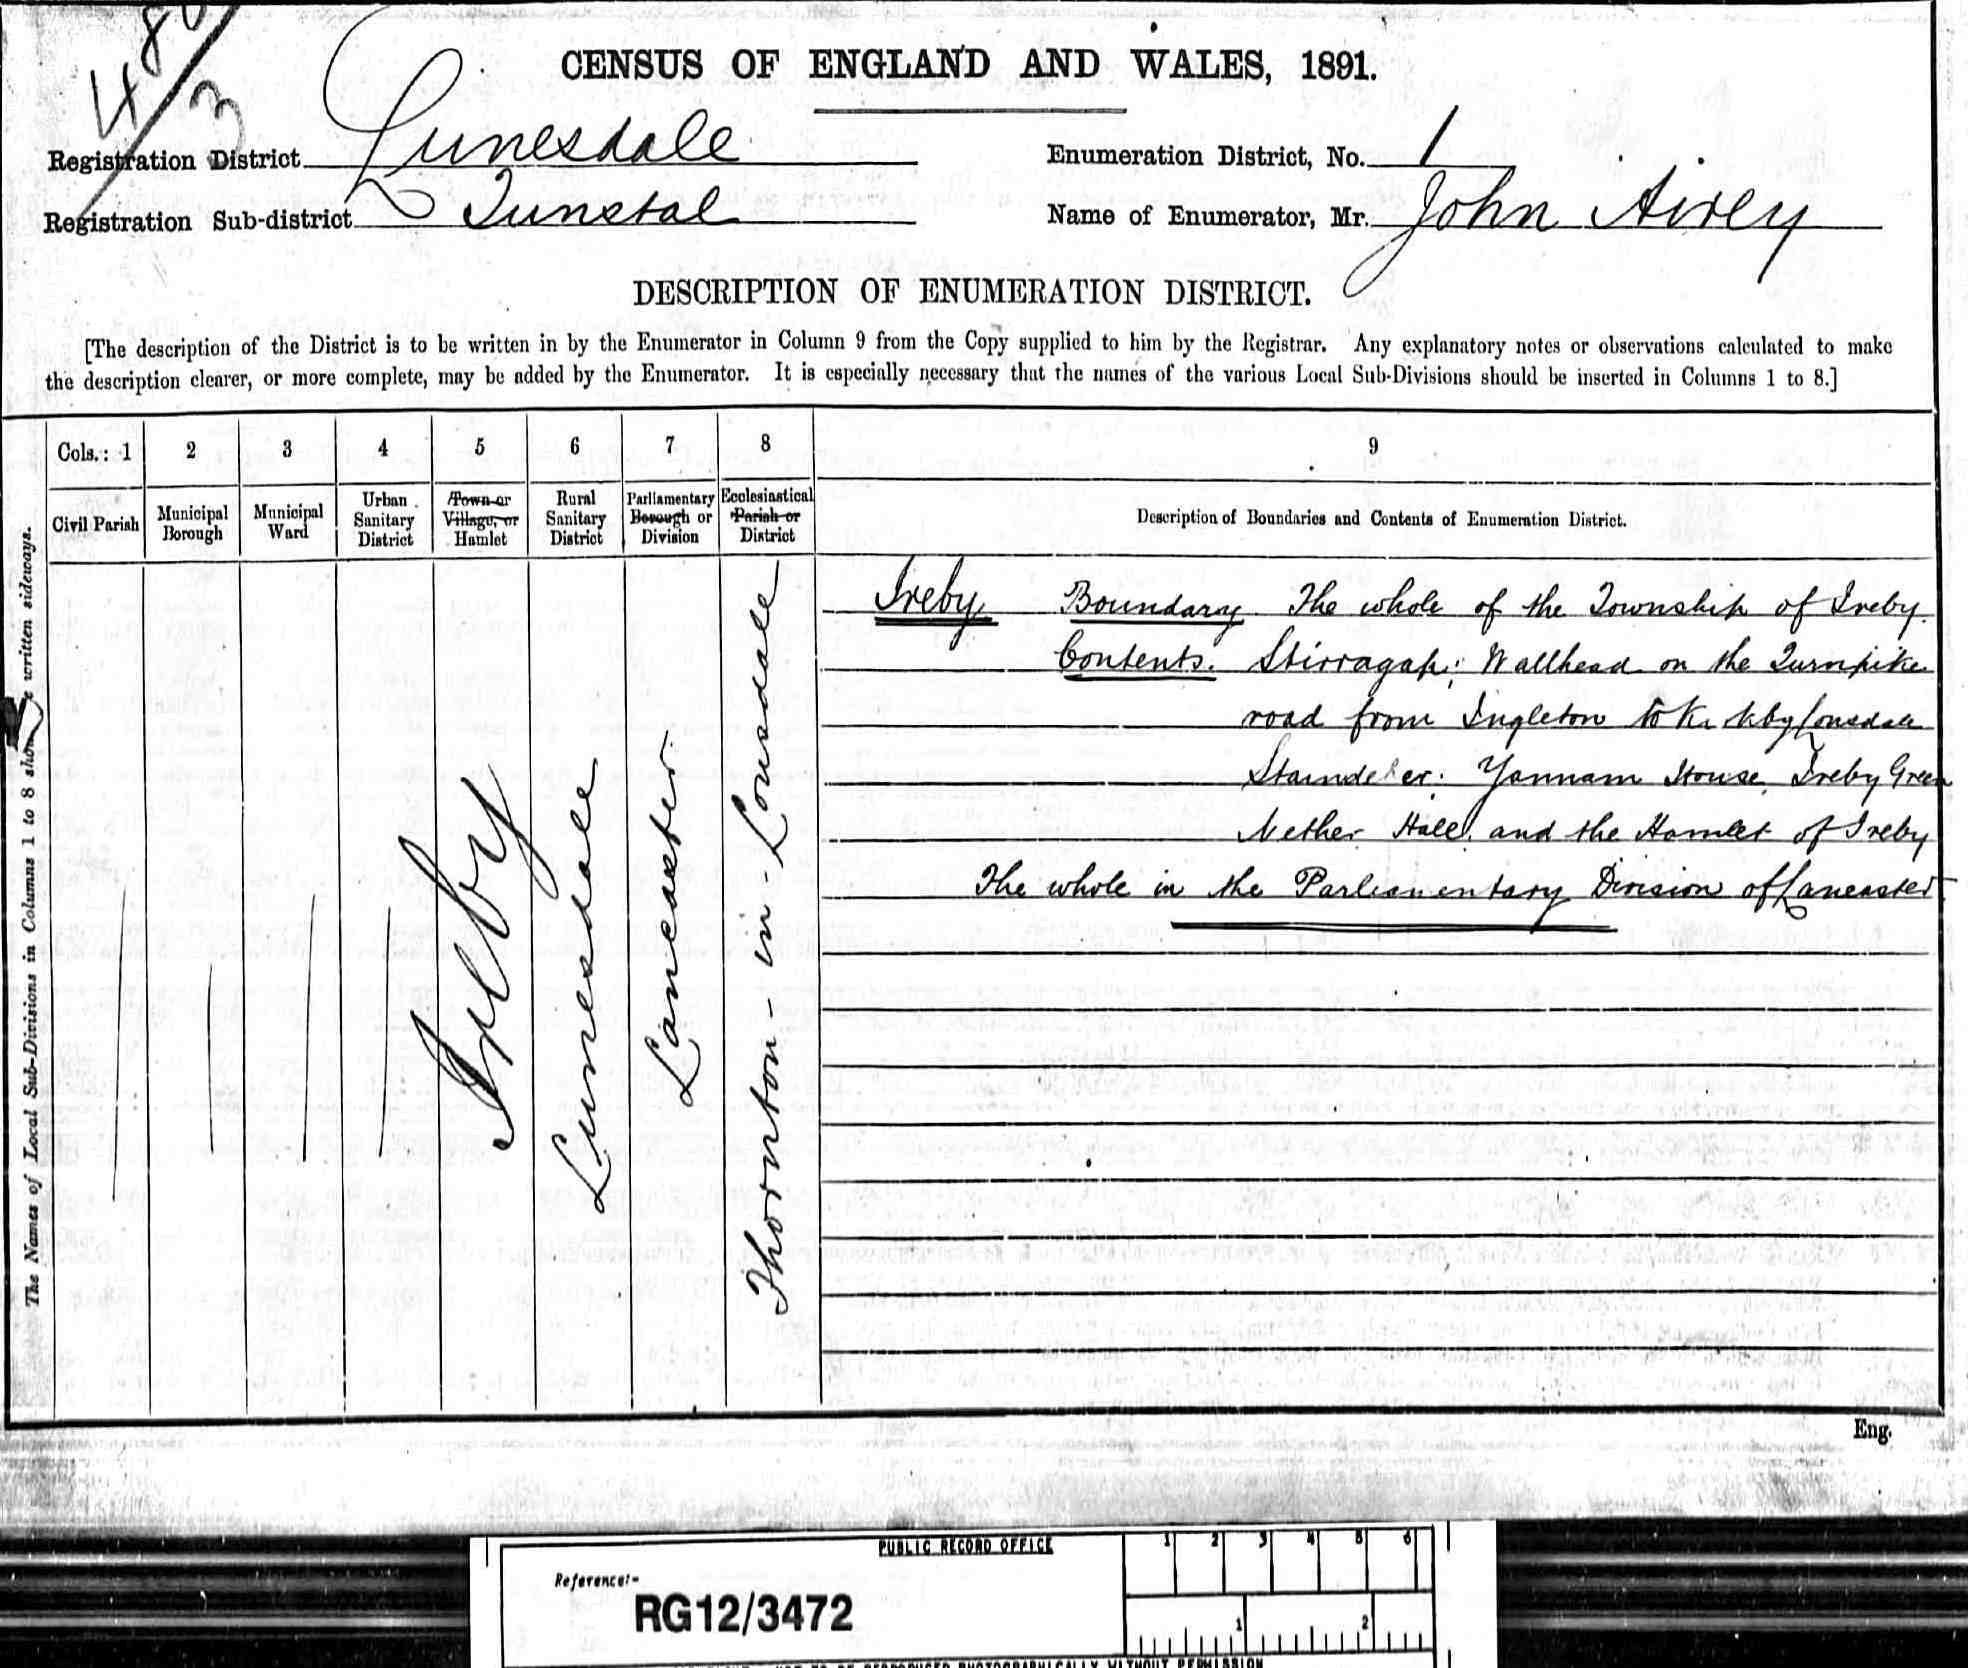 480/3
CENSUS OF ENGLAND AND WALES, 1891.
Registration District Lunesdale
Enumeration District, No. 1
Registration Sub-district Tunstal
Name of Enumerator, Mr. John Airey
DESCRIPTION OF ENUMERATION DISTRICT.
[The description of the District is to be written in by the Enumerator in Column 9 from the Copy supplied to him by the Registrar. Any explanatory notes or observations calculated to make
the description clearer, or more complete, may be added by the Enumerator. It is especially necessary that the names of the various Local Sub-Divisions should be inserted in Columns 1 to 8.]
The Names of Local Sub-Divisions in Columns 1 to 8 should be written sideways.
Cols.: 1 2 3 4 5 6 7 8 9
Civil Parish
Municipal
Borough
Municipal
Ward
Urban
Sanitary
District
Town or
Village, or
Hamlet
Rural
Sanitary
District
Parliamentary
Borough or
Division
Ecclesiastical
Parish or
District
Description of Boundaries and Contents of Enumeration District.
Ireby
Lunesdale
Lancaster
Thornton-in-Lonsdale
Ireby Boundary. The whole of the Township of Ireby.
Contents. Stirragap; Wallhead on the Turnpike
road from Ingleton to Kirkby Lonsdale
Yannam House, Ireby Green
Nether Hall, and the Hamlet of Ireby
The whole in the Parliamentary Division of Lancaster
Eng.
PUBLIC RECORD OFFICE
1 2 3 4 5 6
Reference:-
RG12/3472
1 2
NOT TO BE REPRODUCED PHOTOGRAPHICALLY WITHOUT PERMISSION